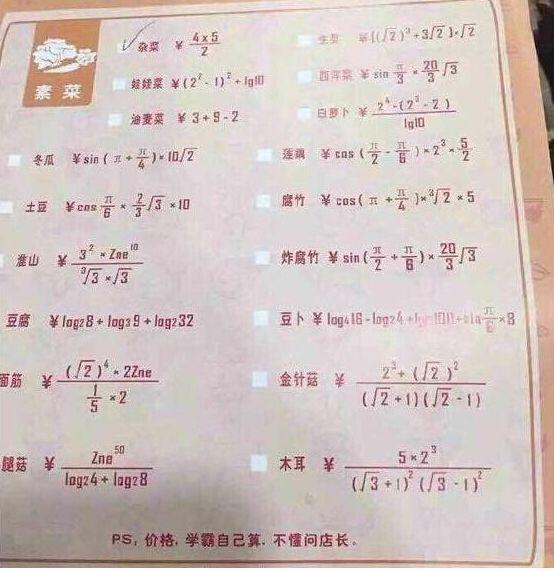 素菜
杂菜 ¥ 4×5/2
生菜 ¥[(√2)³+3√2]×√2
娃娃菜 ¥(2²-1)²+lg10
西洋菜 ¥ sin π/3 × 20/3 √3
油麦菜 ¥ 3+9-2
白萝卜 ¥ 2⁴-(2³-2)/lg10
冬瓜 ¥sin(π+π/4)×10√2
莲藕 ¥cos(π/2-π/6)×2³×5/2
土豆 ¥cos π/6 × 2/3 √3 ×10
腐竹 ¥cos(π+π/4)×³√2×5
淮山 ¥ 3²×Zne¹⁰/³√3×√3
炸腐竹 ¥ sin(π/2+π/6)×20/3 √3
豆腐 ¥log28+log39+log232
豆卜 ¥log416-log24+ π/6×8
面筋 ¥ (√2)⁴×2Zne/1/5×2
金针菇 ¥ 2³+(√2)²/(√2+1)(√2-1)
腿菇 ¥ Zne⁵⁰/log24+log28
木耳 ¥ 5×2³/(√3+1)²(√3-1)²
PS, 价格, 学霸自己算. 不懂问店长。